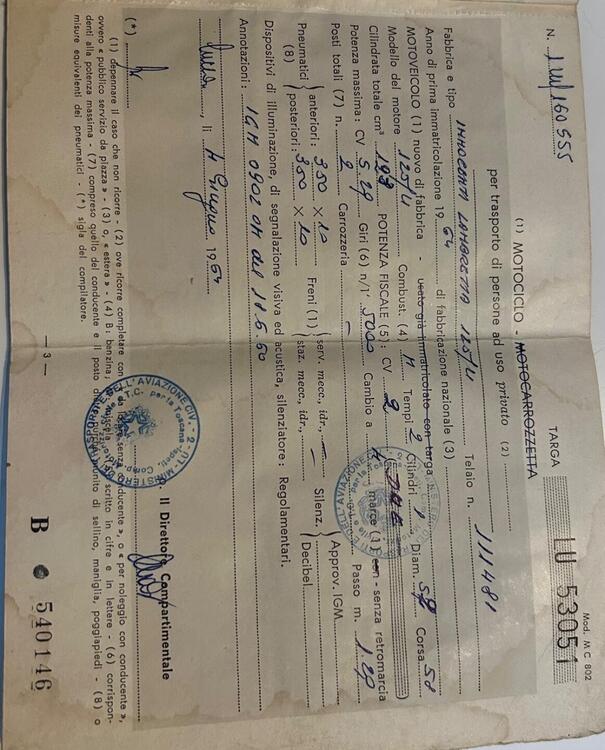 Mod. M C 802
TARGA LU 53051
N. 1 LU/160555
(1) MOTOCICLO - MOTOCARROZZETTA
per trasporto di persone ad uso privato (2)
Fabbrica e tipo INNOCENTI LAMBRETTA 125/LI Telaio n. 111481
Anno di prima immatricolazione 19 64 di fabbricazione nazionale (3)
MOTOVEICOLO (1) nuovo di fabbrica - usato già immatricolato con targa
Modello del motore 125/LI Combust. (4) M Tempi 2 Cilindri 1 Diam. 52 Corsa 58
Cilindrata totale cm³ 123 POTENZA FISCALE (5): CV 2
Potenza massima: CV 5.29 Giri (6) n/1' 5000 Cambio a 4 marce (1) con - senza retromarcia
Posti totali (7) n. 2 Carrozzeria - Passo m. 1.29
Pneumatici (8) anteriori: 350 × 10 Freni (1) serv. mecc., idr., Silenz. Approv. IGM
posteriori: 350 × 10 staz. mecc., idr., Decibel.
Dispositivi di illuminazione, di segnalazione visiva ed acustica, silenziatore: Regolamentari.
Annotazioni: IGM 0902 OM del 11.5.60
Lucca, li 11 Giugno 1964
Il Direttore Compartimentale
(*)
(1) depennare il caso che non ricorre - (2) ove ricorre completare con
ovvero « pubblico servizio da piazza » - (3) o, « estera » - (4) B: benzina;
denti alla potenza massima - (7) compreso quello del conducente e il posto
misure equivalenti dei pneumatici - (*) sigla del compilatore.
senza conducente », o « per noleggio con conducente »,
scritto in cifre e in lettere - (6) corrispon-
munito di sellino, maniglia, poggiapiedi - (8) o
— 3 —
B 540146